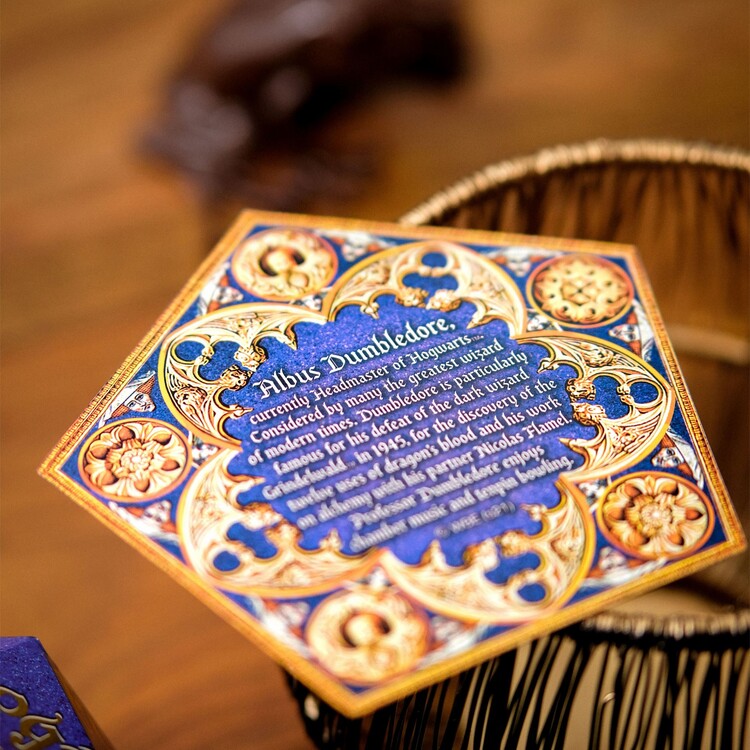 Albus Dumbledore,
currently Headmaster of Hogwarts...
Considered by many the greatest wizard
of modern times. Dumbledore is particularly
famous for his defeat of the dark wizard
Grindelwald in 1945, for the discovery of the
twelve uses of dragon's blood and his work
on alchemy with his partner Nicolas Flamel.
Professor Dumbledore enjoys
chamber music and tenpin bowling.